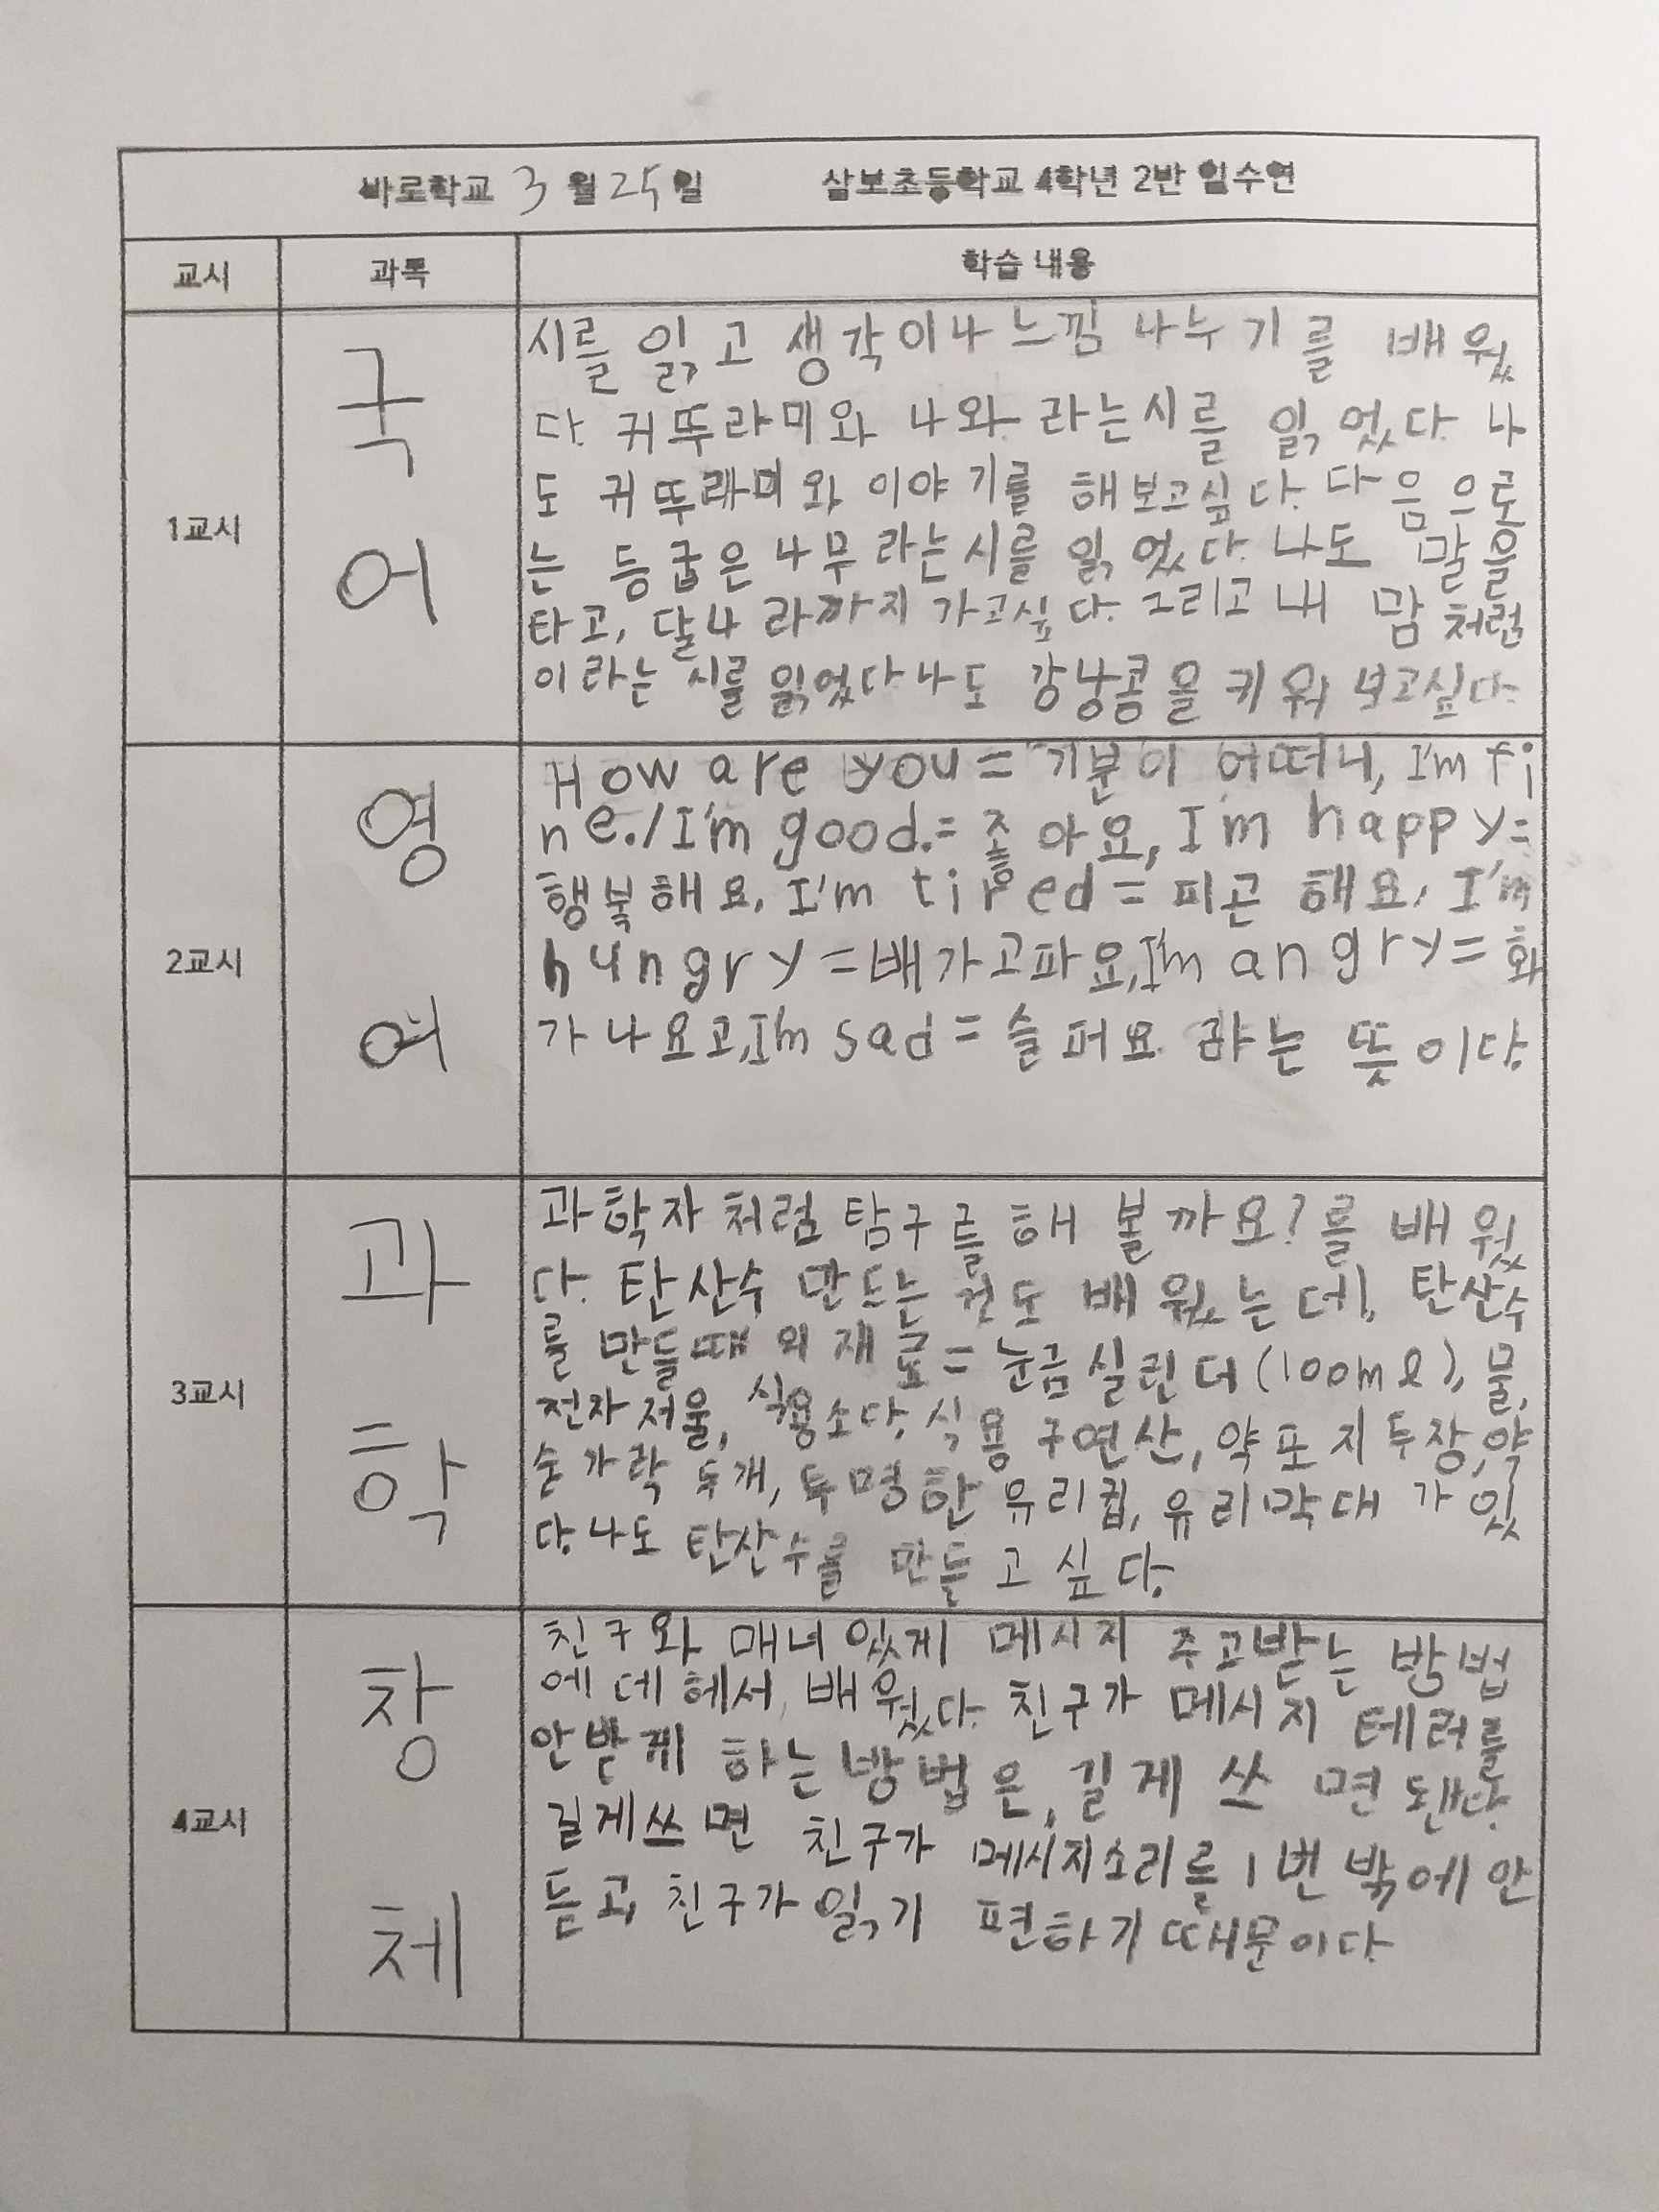 바로학교 3월 25일 삼보초등학교 4학년 2반 임수연
교시 과목 학습 내용
1교시
국어
시를 읽고 생각이나 느낌 나누기를 배웠
다. 귀뚜라미와 나와 라는시를 읽었다. 나
도 귀뚜래미와 이야기를 해보고싶다. 다음으로
는 등굽은 나무라는시를 읽었다. 나도 말을
타고, 달나라까지 가고싶다. 그리고 내 맘처럼
이라는 시를 읽었다 나도 강낭콩을 키워 보고싶다.
2교시
영어
How are you = 기분이 어떠니, I'm fi
ne./I'm good.= 좋아요, I'm happy=
행복해요. I'm tired = 피곤해요, I'm
hungry=배가고파요, I'm angry= 화
가나요고, I'm sad = 슬퍼요 라는 뜻이다.
3교시
과학
과학자처럼 탐구를 해 볼까요?를 배웠
다. 탄산수 만드는 것도 배웠는데, 탄산수
를 만들때의 재료= 눈금실린더(100mℓ), 물,
전자저울, 식용소다, 식용 구연산, 약포지두장, 약
숟가락 두개, 투명한 유리컵, 유리막대 가있
다. 나도 탄산수를 만들고 싶다.
4교시
창체
친구와 매너있게 메시지 주고받는 방법
에데헤서 배웠다. 친구가 메시지 테러를
안받게 하는방법은, 길게 쓰면 됀다.
길게쓰면 친구가 메시지소리를 1번 밖에 안
듣고, 친구가읽기 편하기때문이다.